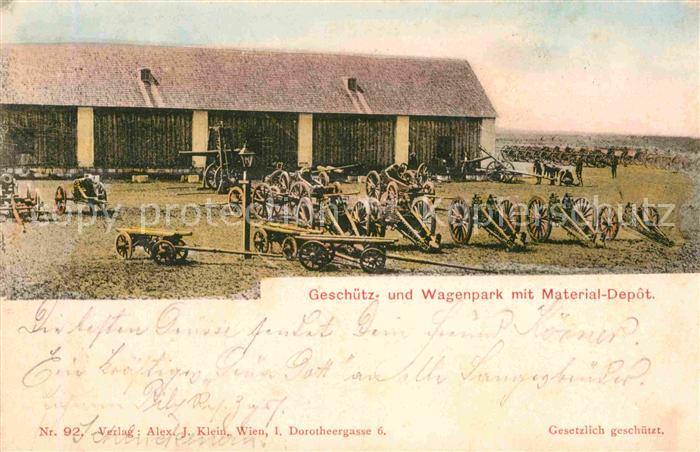 Geschütz- und Wagenpark mit Material-Depôt.
Die besten Grüsse sendet Dein Freund Körner.
Ein kräftiges "Grüß Gott" an alle Sangesbrüder.
Nr. 92. Verlag: Alex. J. Klein, Wien, I. Dorotheergasse 6.
Gesetzlich geschützt.